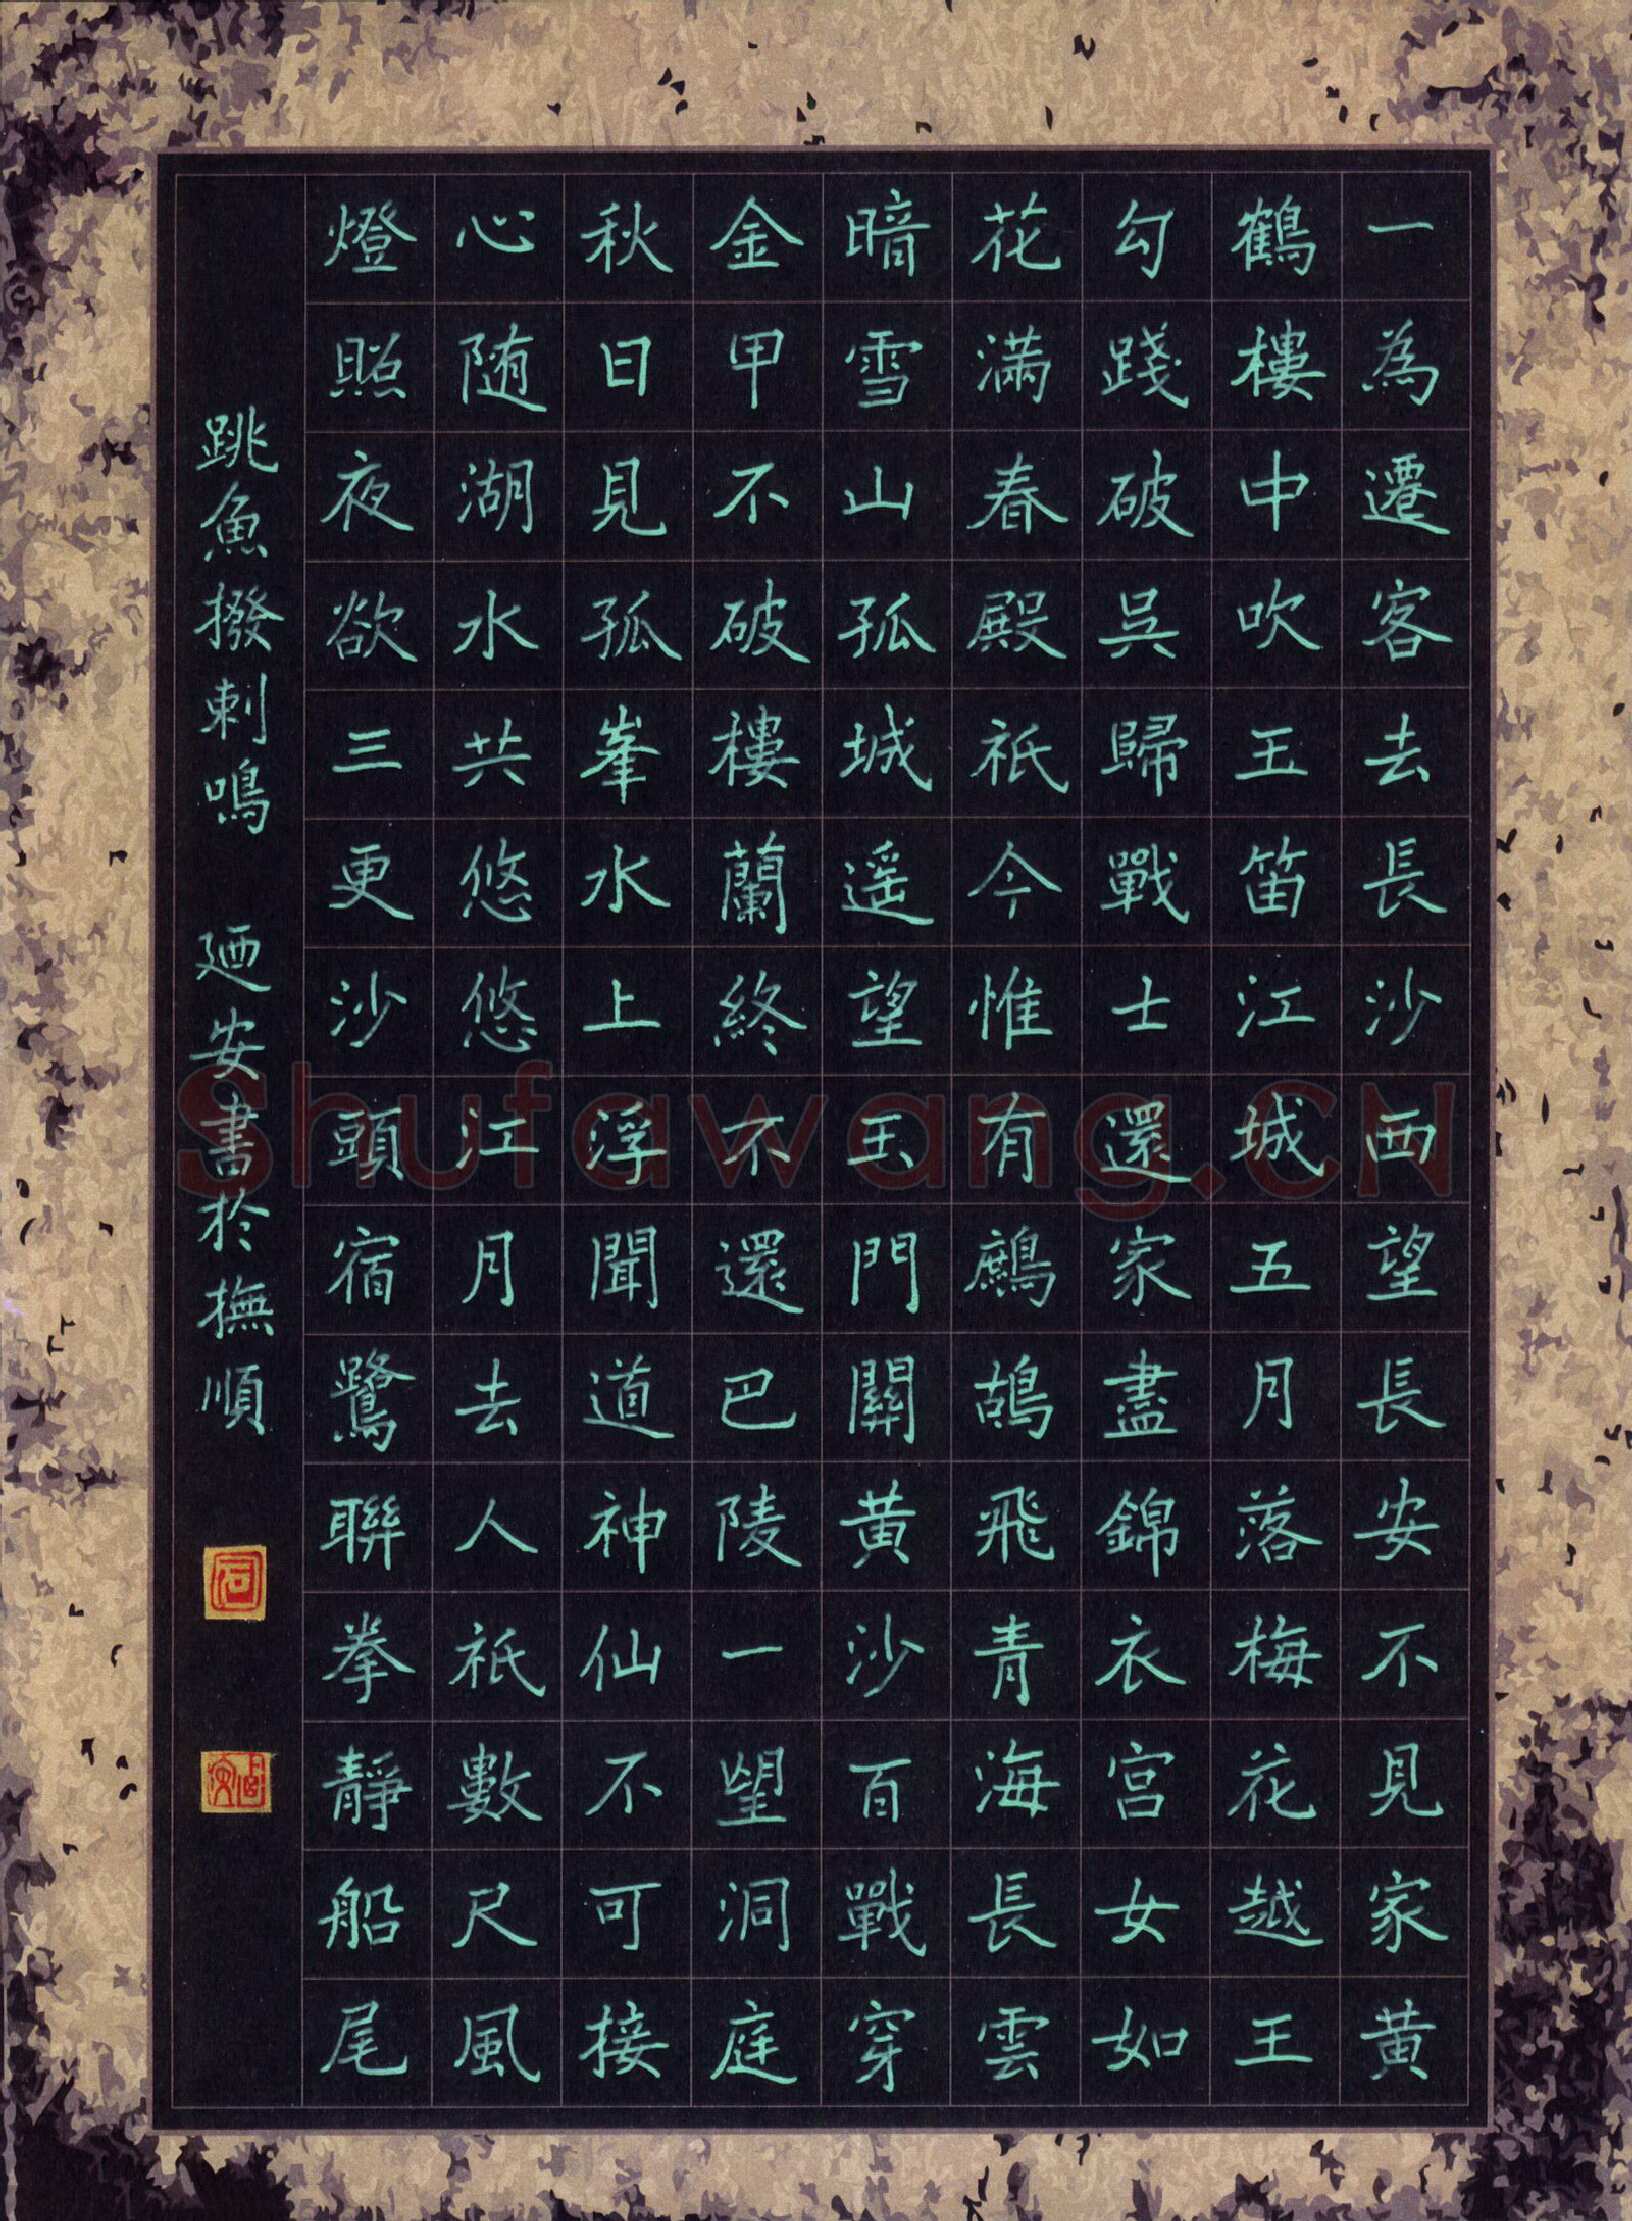 一為遷客去長沙西望長安不見家黄
鶴樓中吹玉笛江城五月落梅花越王
勾踐破吳歸戰士還家盡錦衣宫女如
花滿春殿祇今惟有鷓鴣飛青海長雲
暗雪山孤城遥望玉門關黄沙百戰穿
金甲不破樓蘭終不還巴陵一望洞庭
秋日見孤峯水上浮聞道神仙不可接
心随湖水共悠悠江月去人祇數尺風
燈照夜欲三更沙頭宿鷺聯拳靜船尾
跳魚撥刺鳴 廼安書於撫順
Shufawang.CN